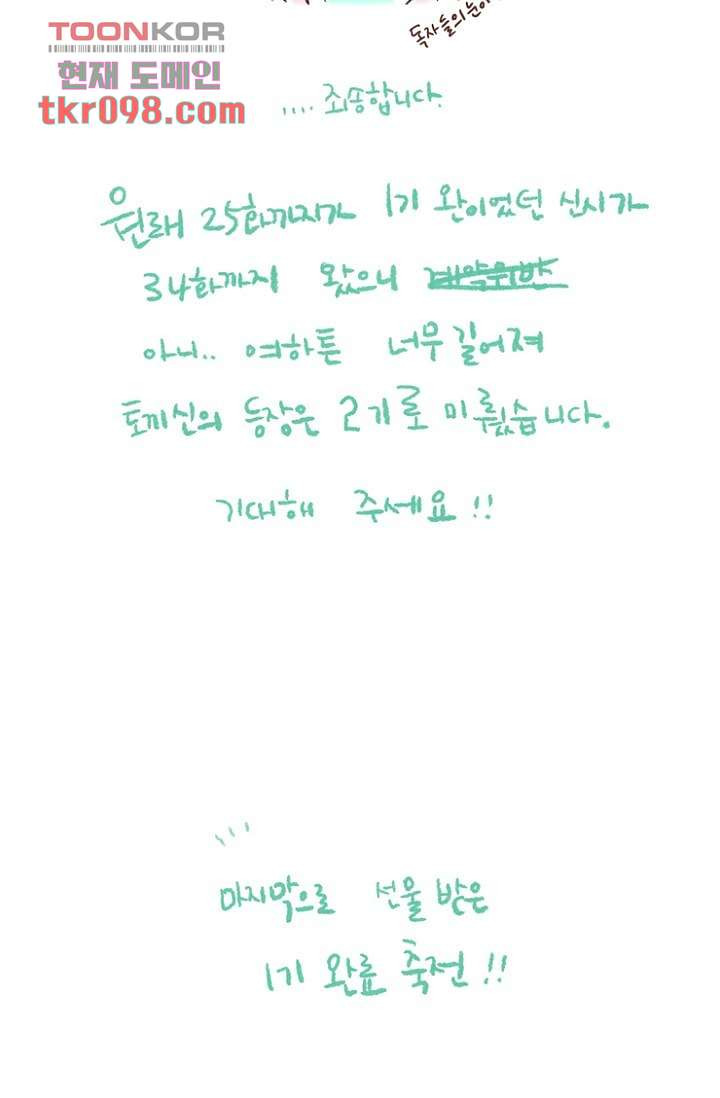 TOONKOR
현재 도메인
tkr098.com
독자들의 눈이
....죄송합니다.
원래 25화까지가 1기 완이었던 신시가
34화까지 왔으니 계약위반
아니.. 여하튼 너무 길어져
토끼신의 등장은 2기로 미뤘습니다.
기대해 주세요!!
마지막으로 선물 받은
1기 완료 축전!!